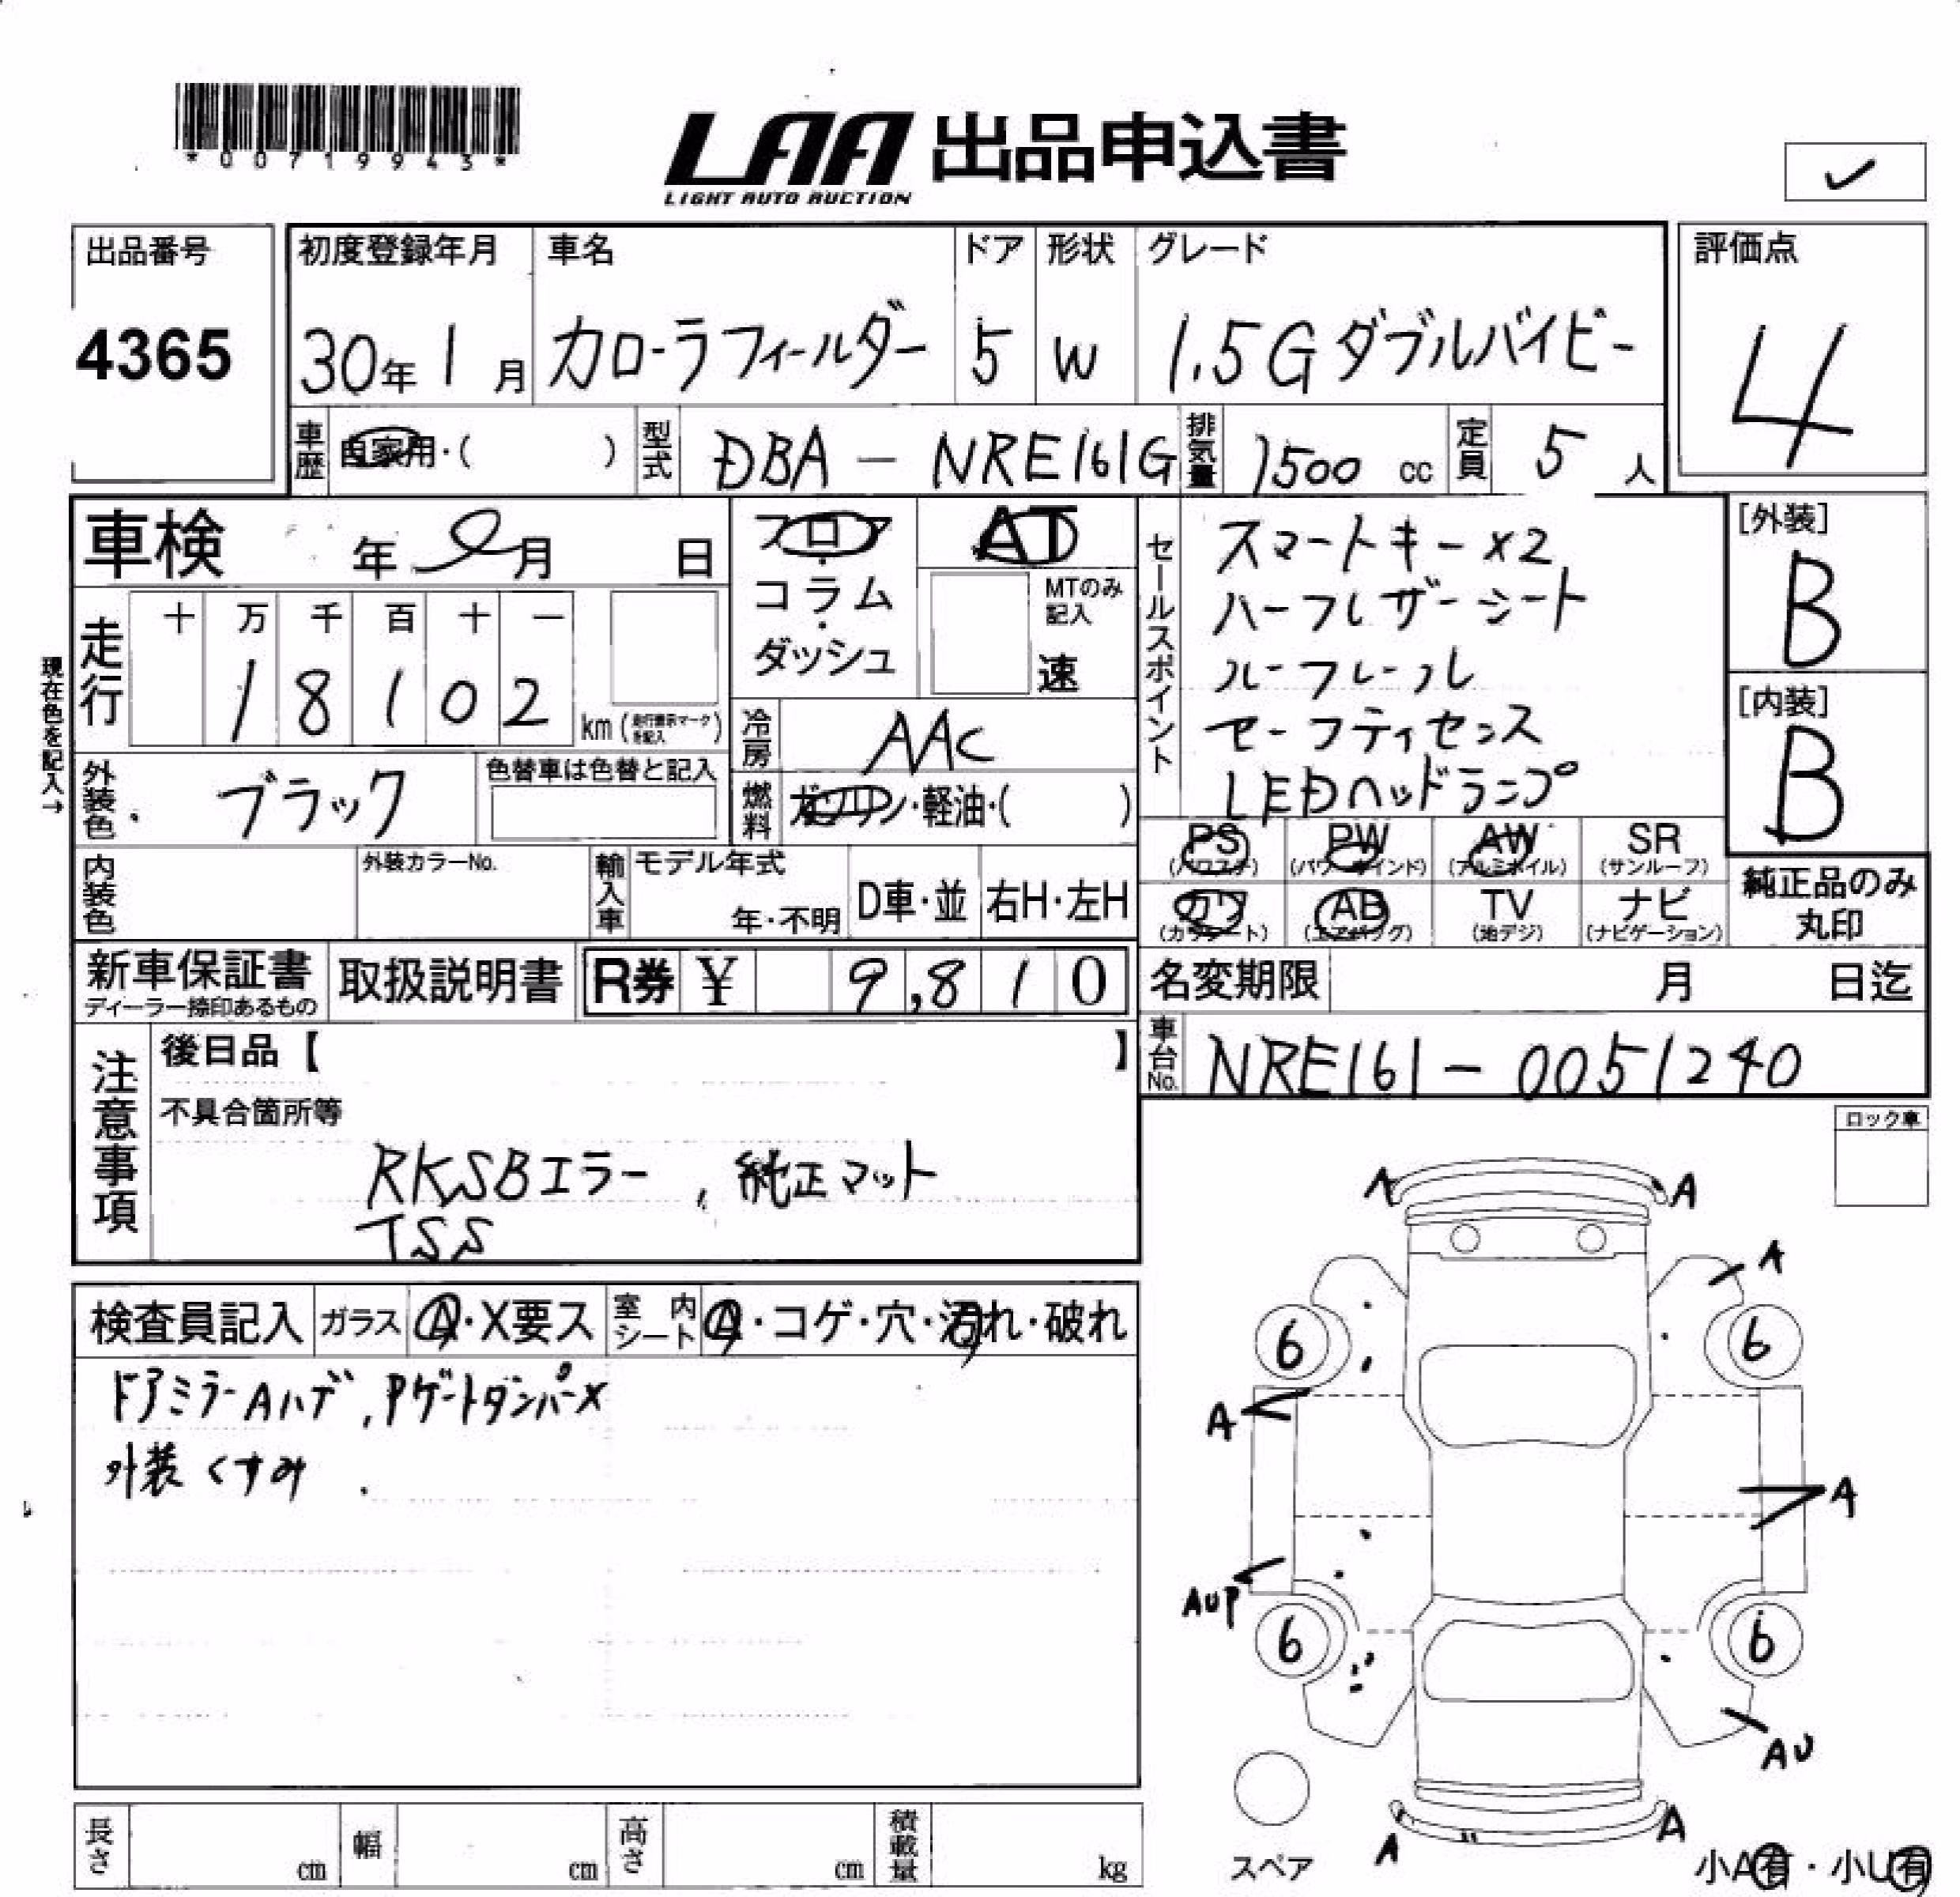 *00719943*
LAA 出品申込書
LIGHT AUTO AUCTION
✓
出品番号
4365
初度登録年月
30年 1月
車名
カローラフィールダー
ドア
5
形状
W
グレード
1.5G ダブルバイビー
評価点
4
車歴 自家用・( )
型式 DBA - NRE161G
排気量 1500 cc
定員 5 人
車検 年 月 日
フロア・コラム・ダッシュ
AT
MTのみ記入
速
セールスポイント
スマートキー×2
ハーフレザーシート
ルーフレール
セーフティセンス
LEDヘッドランプ
[外装]
B
[内装]
B
現在色を記入→
走行
十 万 千 百 十 一
1 8 1 0 2
km (走行表示マークを記入)
冷房 AAC
燃料 ガソリン・軽油・( )
外装色 ブラック
色替車は色替と記入
内装色
外装カラーNo.
輸入車
モデル年式
年・不明
D車・並
右H・左H
PS (パワステ)
PW (パワーウインド)
AW (アルミホイル)
SR (サンルーフ)
カワ (カワシート)
AB (エアバッグ)
TV (地デジ)
ナビ (ナビゲーション)
純正品のみ
丸印
新車保証書
ディーラー捺印あるもの
取扱説明書
R券 ¥ 9,810
名変期限 月 日迄
車台No. NRE161-0051240
注意事項
後日品【 】
不具合箇所等
RKSBエラー, 純正マット
TSS
ロック車
検査員記入
ガラス Ⓐ・X要ス
室内シート Ⓐ・コゲ・穴・汚れ・破れ
ドアミラーAハゲ, Pゲートダンパー×
外装くすみ
A
A
A
6
6
A
A
AUP
6
6
AU
A
A
スペア
小A有・小U有
長さ cm
幅 cm
高さ cm
積載量 kg